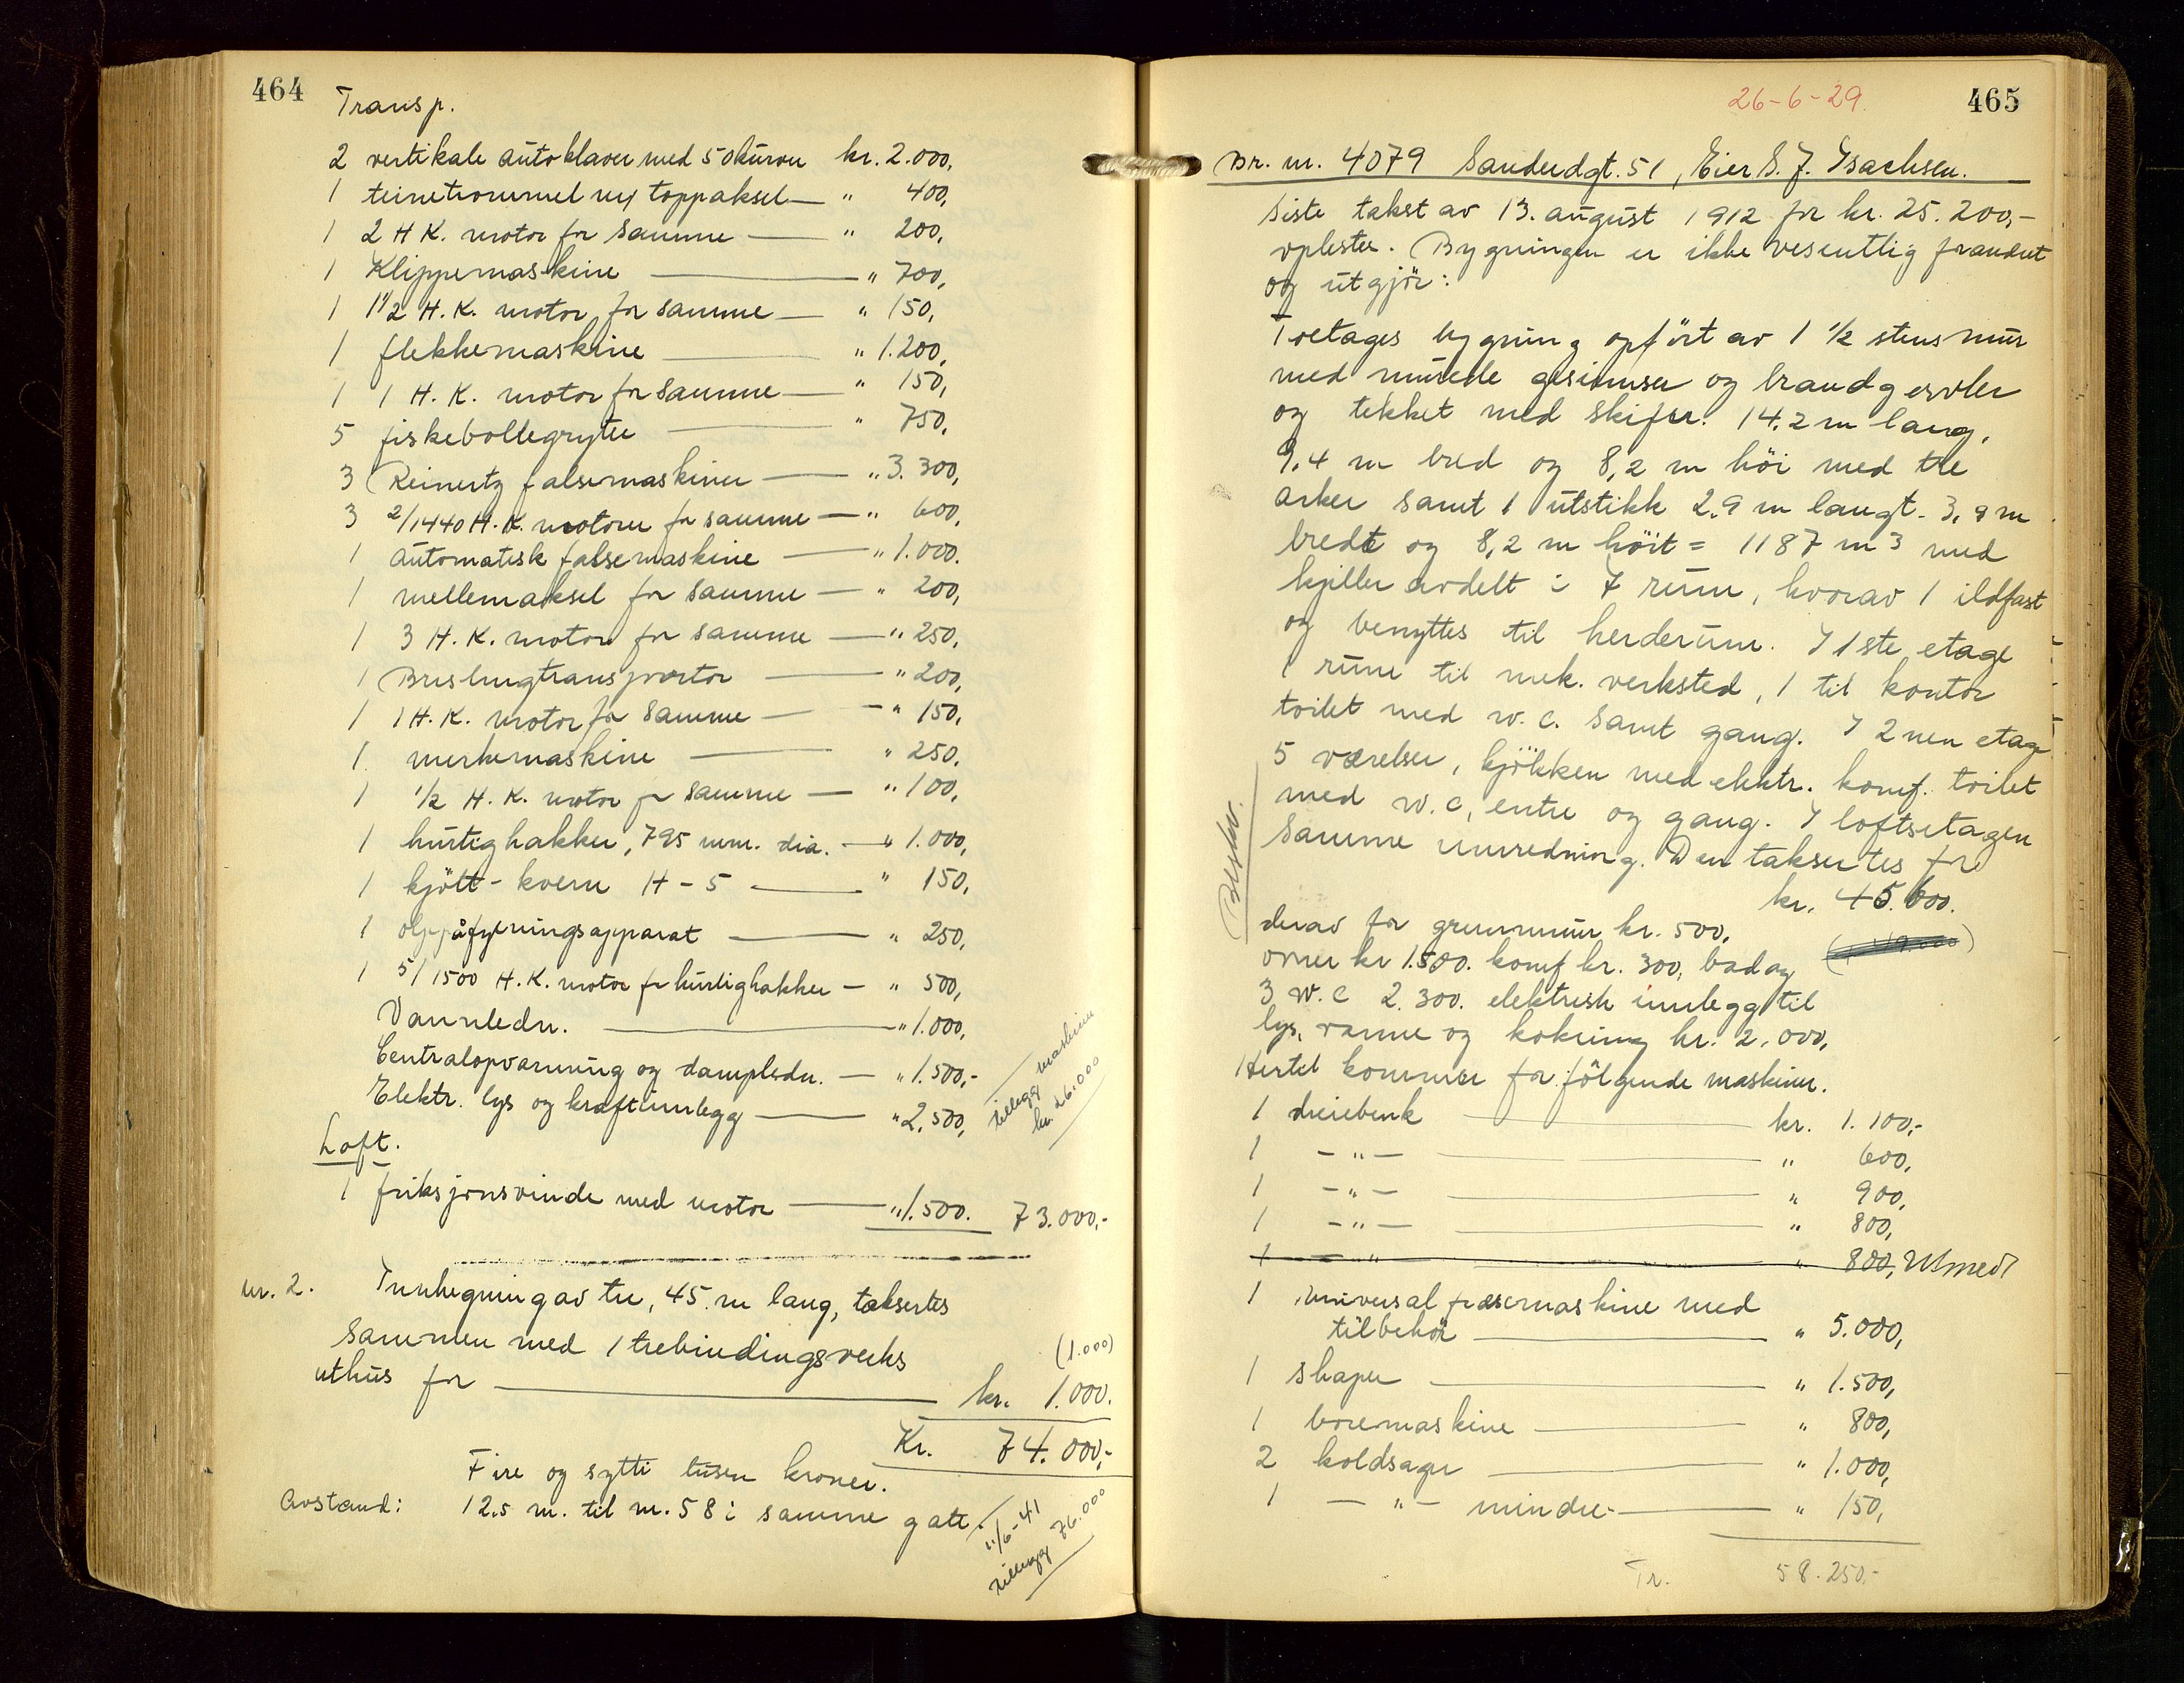 464
Transp.
2 vertikale autoklaver med 50 kurver kr. 2.000,
1 teinetrommel m/ toppaksel — " 400,
1 2 H K. motor for samme — " 200,
1 Klippemaskine — " 700,
1 1 1/2 H. K. motor for samme — " 150,
1 flekkemaskine — " 1.200,
1 1 H. K. motor for samme — " 150,
5 fiskebollegryter — " 750,
3 Reinertz falsemaskiner — " 3.300,
3 2/1440 H. K. motorer for samme — " 600,
1 automatisk falsemaskine — " 1.000.
1 mellemaksel for samme — " 200,
1 3 H. K. motor for samme — " 250,
1 Brislingtransportør — " 200,
1 1 H. K. motor for samme — " 150,
1 merkemaskine — " 250,
1 1/2 H. K. motor for samme — " 100,
1 hurtighakker, 795 mm. dia. — " 1.000,
1 kjøtt-kvern H-5 — " 150,
1 oljepåfylningsapparat — " 250,
1 5/1500 H. K. motor for hurtighakker — " 500,
Vannledn. — " 1.000,
Centralopvarming og dampledn. — " 1.500,-
Elektr. lys og kraftinnlegg — " 2.500,
tillegg maskiner
kr. 26.000
Loft.
1 friksjonsvinde med motor — " 1.500. 73.000,-
nr. 2. Innhegning av tre, 45 m lang, taksertes
sammen med 1 trebindingsverks
(1.000)
uthus for — kr. 1.000.
Kr. 74.000,-
Fire og sytti tusen kroner.
Avstand: 12.5 m. til nr. 58 i samme gate.
11/6-41
tillegg 76.000
26-6-29.
465
Br. nr. 4079 Sandeidgt. 51, Eier S. J. Isachsen.
Siste takst av 13. august 1912 for kr. 25.200,-
oplestes. Bygningen er ikke vesentlig forandret
og utgjör:
Toetages bygning opfört av 1 1/2 stens mur
med murede gesimser og brandgavler
og tekket med skifer. 14.2 m lang,
9,4 m bred og 8,2 m höi med tre
arker samt 1 utstikk 2.9 m langt. 3,9 m
bredt og 8,2 m höit = 1187 m3 med
kjeller avdelt i 7 rum, hvorav 1 ildfast
og benyttes til herderum. I 1ste etage
1 rum til mek. verksted, 1 til kontor
toilet med w. c. samt gang. I 2nen etage
5 værelser, kjökken med elektr. komf. toilet
med w. c, entre og gang. I loftsetagen
samme innredning. Den taksertes for
kr. 45.600.
derav for grunnmur kr. 500,
ovner kr 1.500. komf kr. 300, bad og
3 w. c 2.300. elektrisk innlegg til
lys, varme og kokning kr. 2.000,
Hertil kommer for fölgende maskiner.
1 dreiebenk — kr. 1.100,-
1 - " - — " 600,
1 - " - — " 900,
1 - " - — " 800,
1 - " — " 800, Utmed
1 universal fræsemaskine med
tilbehör — " 5.000,
1 shaper — " 1.500,
1 boremaskine — " 800,
2 koldsager — " 1.000,
1 - " - mindre — " 150,
Tr. 58.250.-